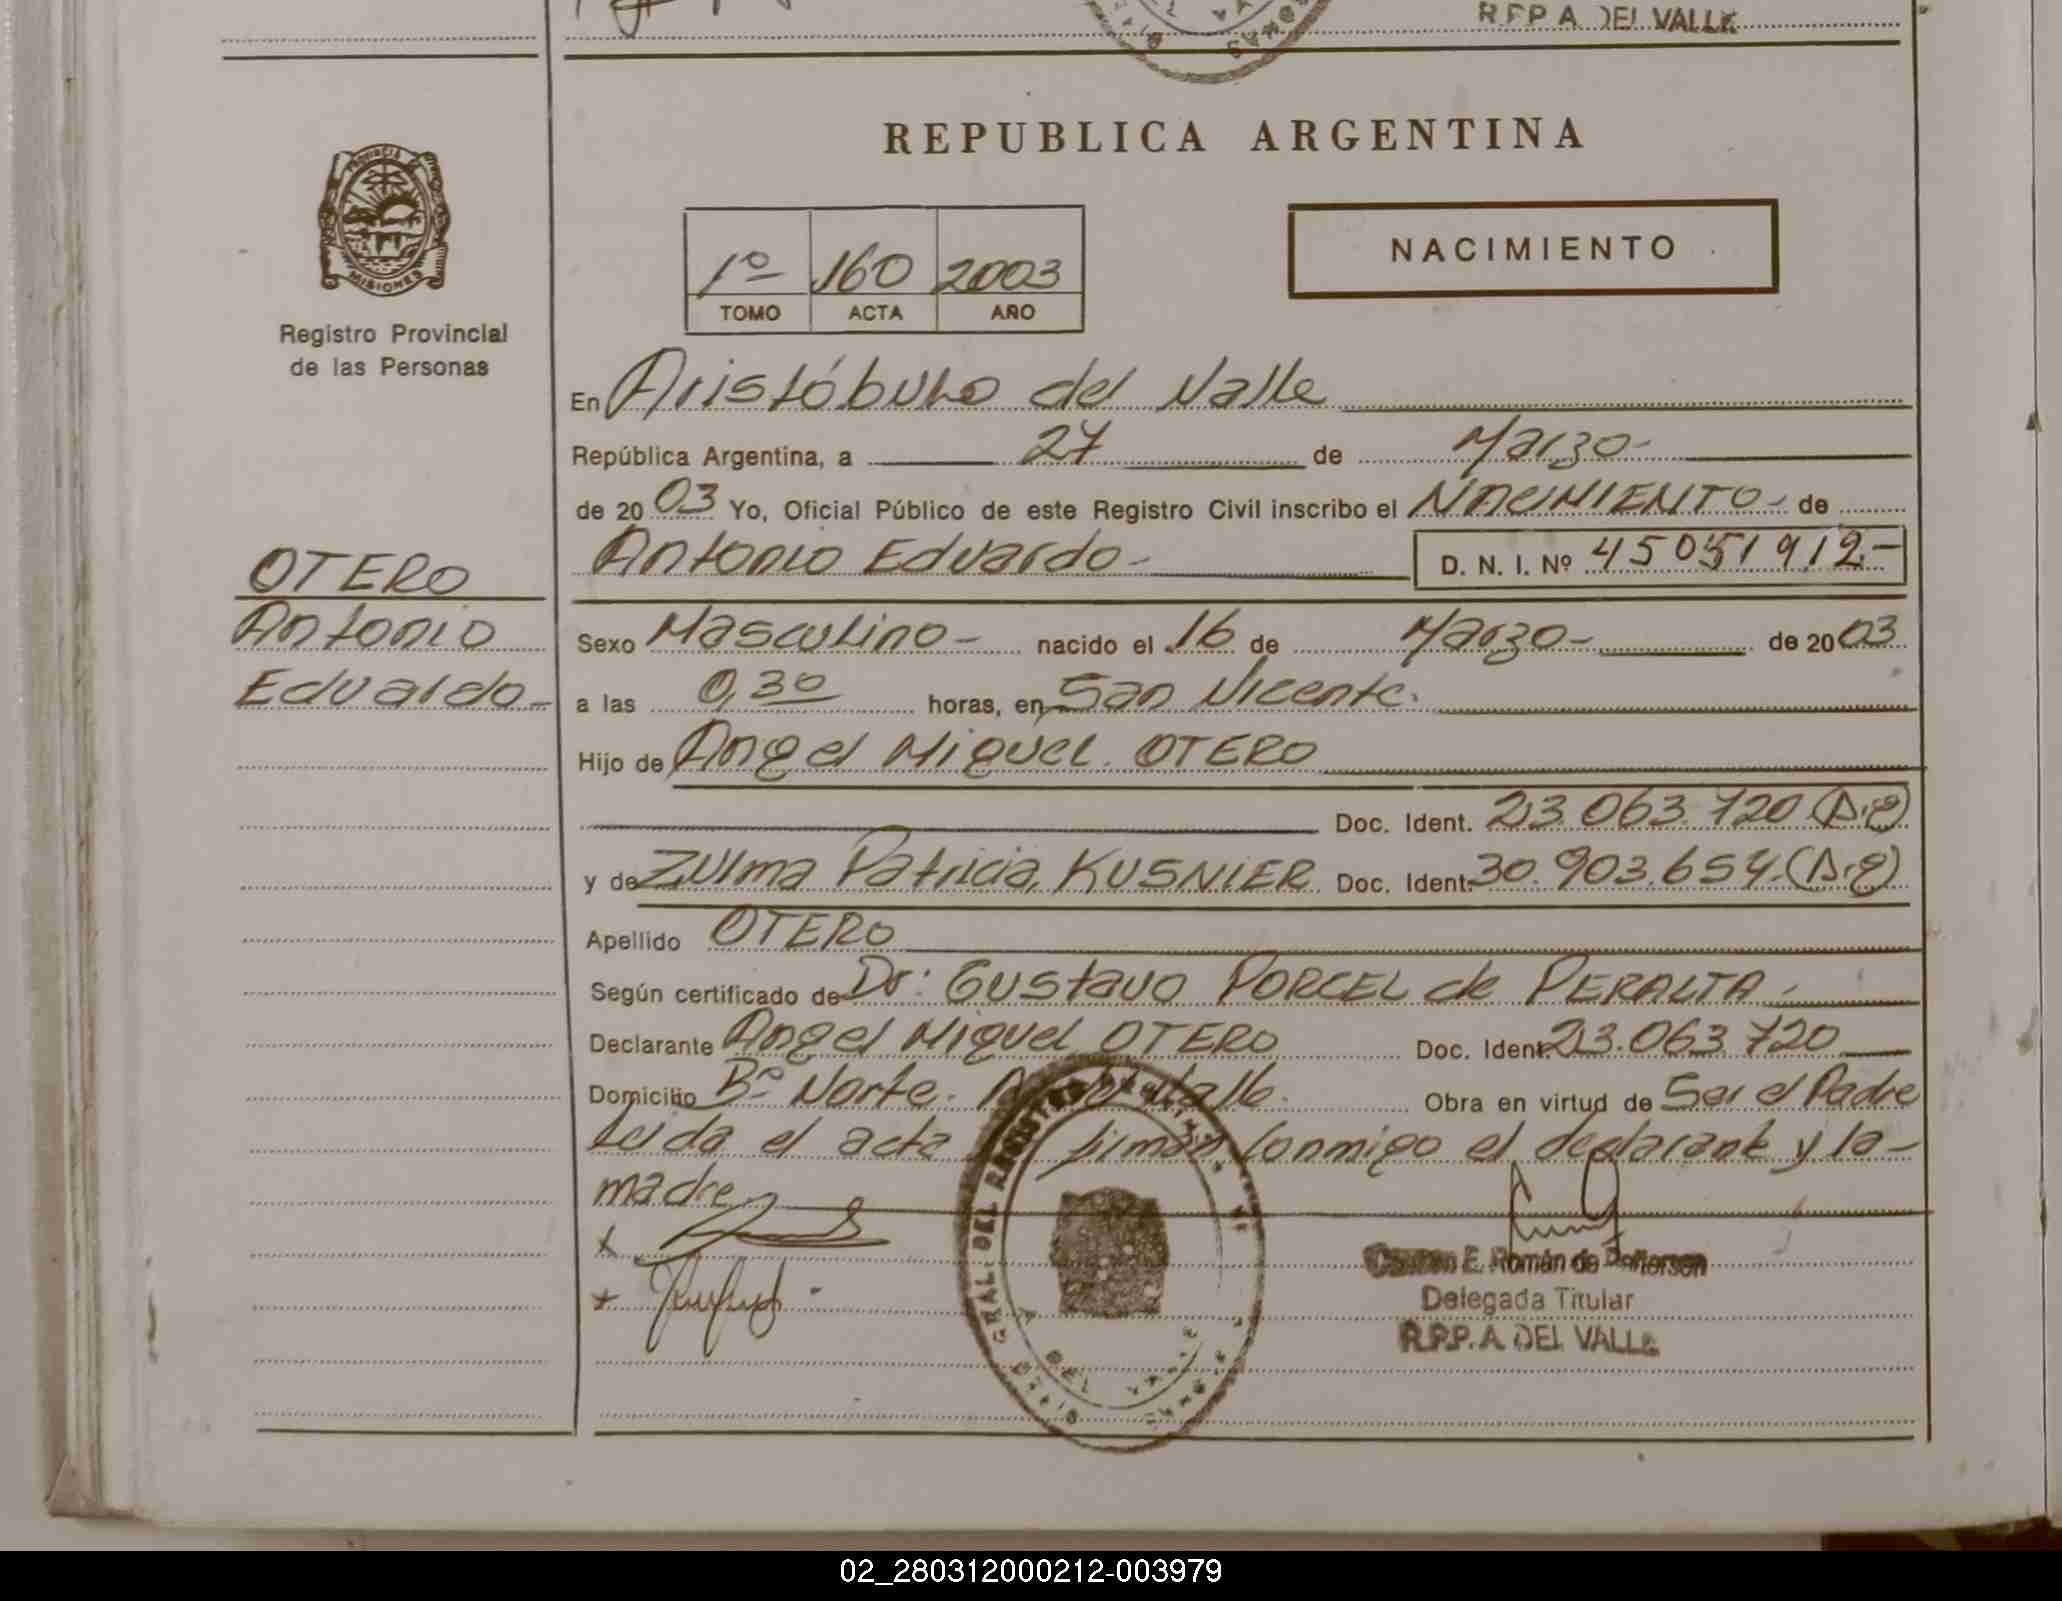 R.P.P. A. DEL VALLE
REPUBLICA ARGENTINA
PROVINCIA
MISIONES
Registro Provincial
de las Personas
1º 160 2003
TOMO ACTA AÑO
NACIMIENTO
En Aristóbulo del Valle
República Argentina, a 27 de Marzo-
de 2003 Yo, Oficial Público de este Registro Civil inscribo el NACIMIENTO- de
Antonio Eduardo- D. N. I. Nº 45051912.-
OTERO
Antonio
Eduardo-
Sexo Masculino- nacido el 16 de Marzo- de 2003
a las 0,30 horas, en San Vicente.
Hijo de Angel Miguel OTERO
Doc. Ident. 23.063.720
y de Zulma Patricia KUSNIER Doc. Ident. 30.903.654.
Apellido OTERO
Según certificado de Dr: Gustavo PORCEL de PERALTA-
Declarante Angel Miguel OTERO Doc. Ident. 23.063.720
Domicilio Bº Norte. Valle. Obra en virtud de Ser el Padre
Leida el acta firman conmigo el declarante y la-
madre
E. Román de
Delegada Titular
R.P.P. A. DEL VALLE
GRAL. DEL REGISTRO
DEL VALLE
02_280312000212-003979